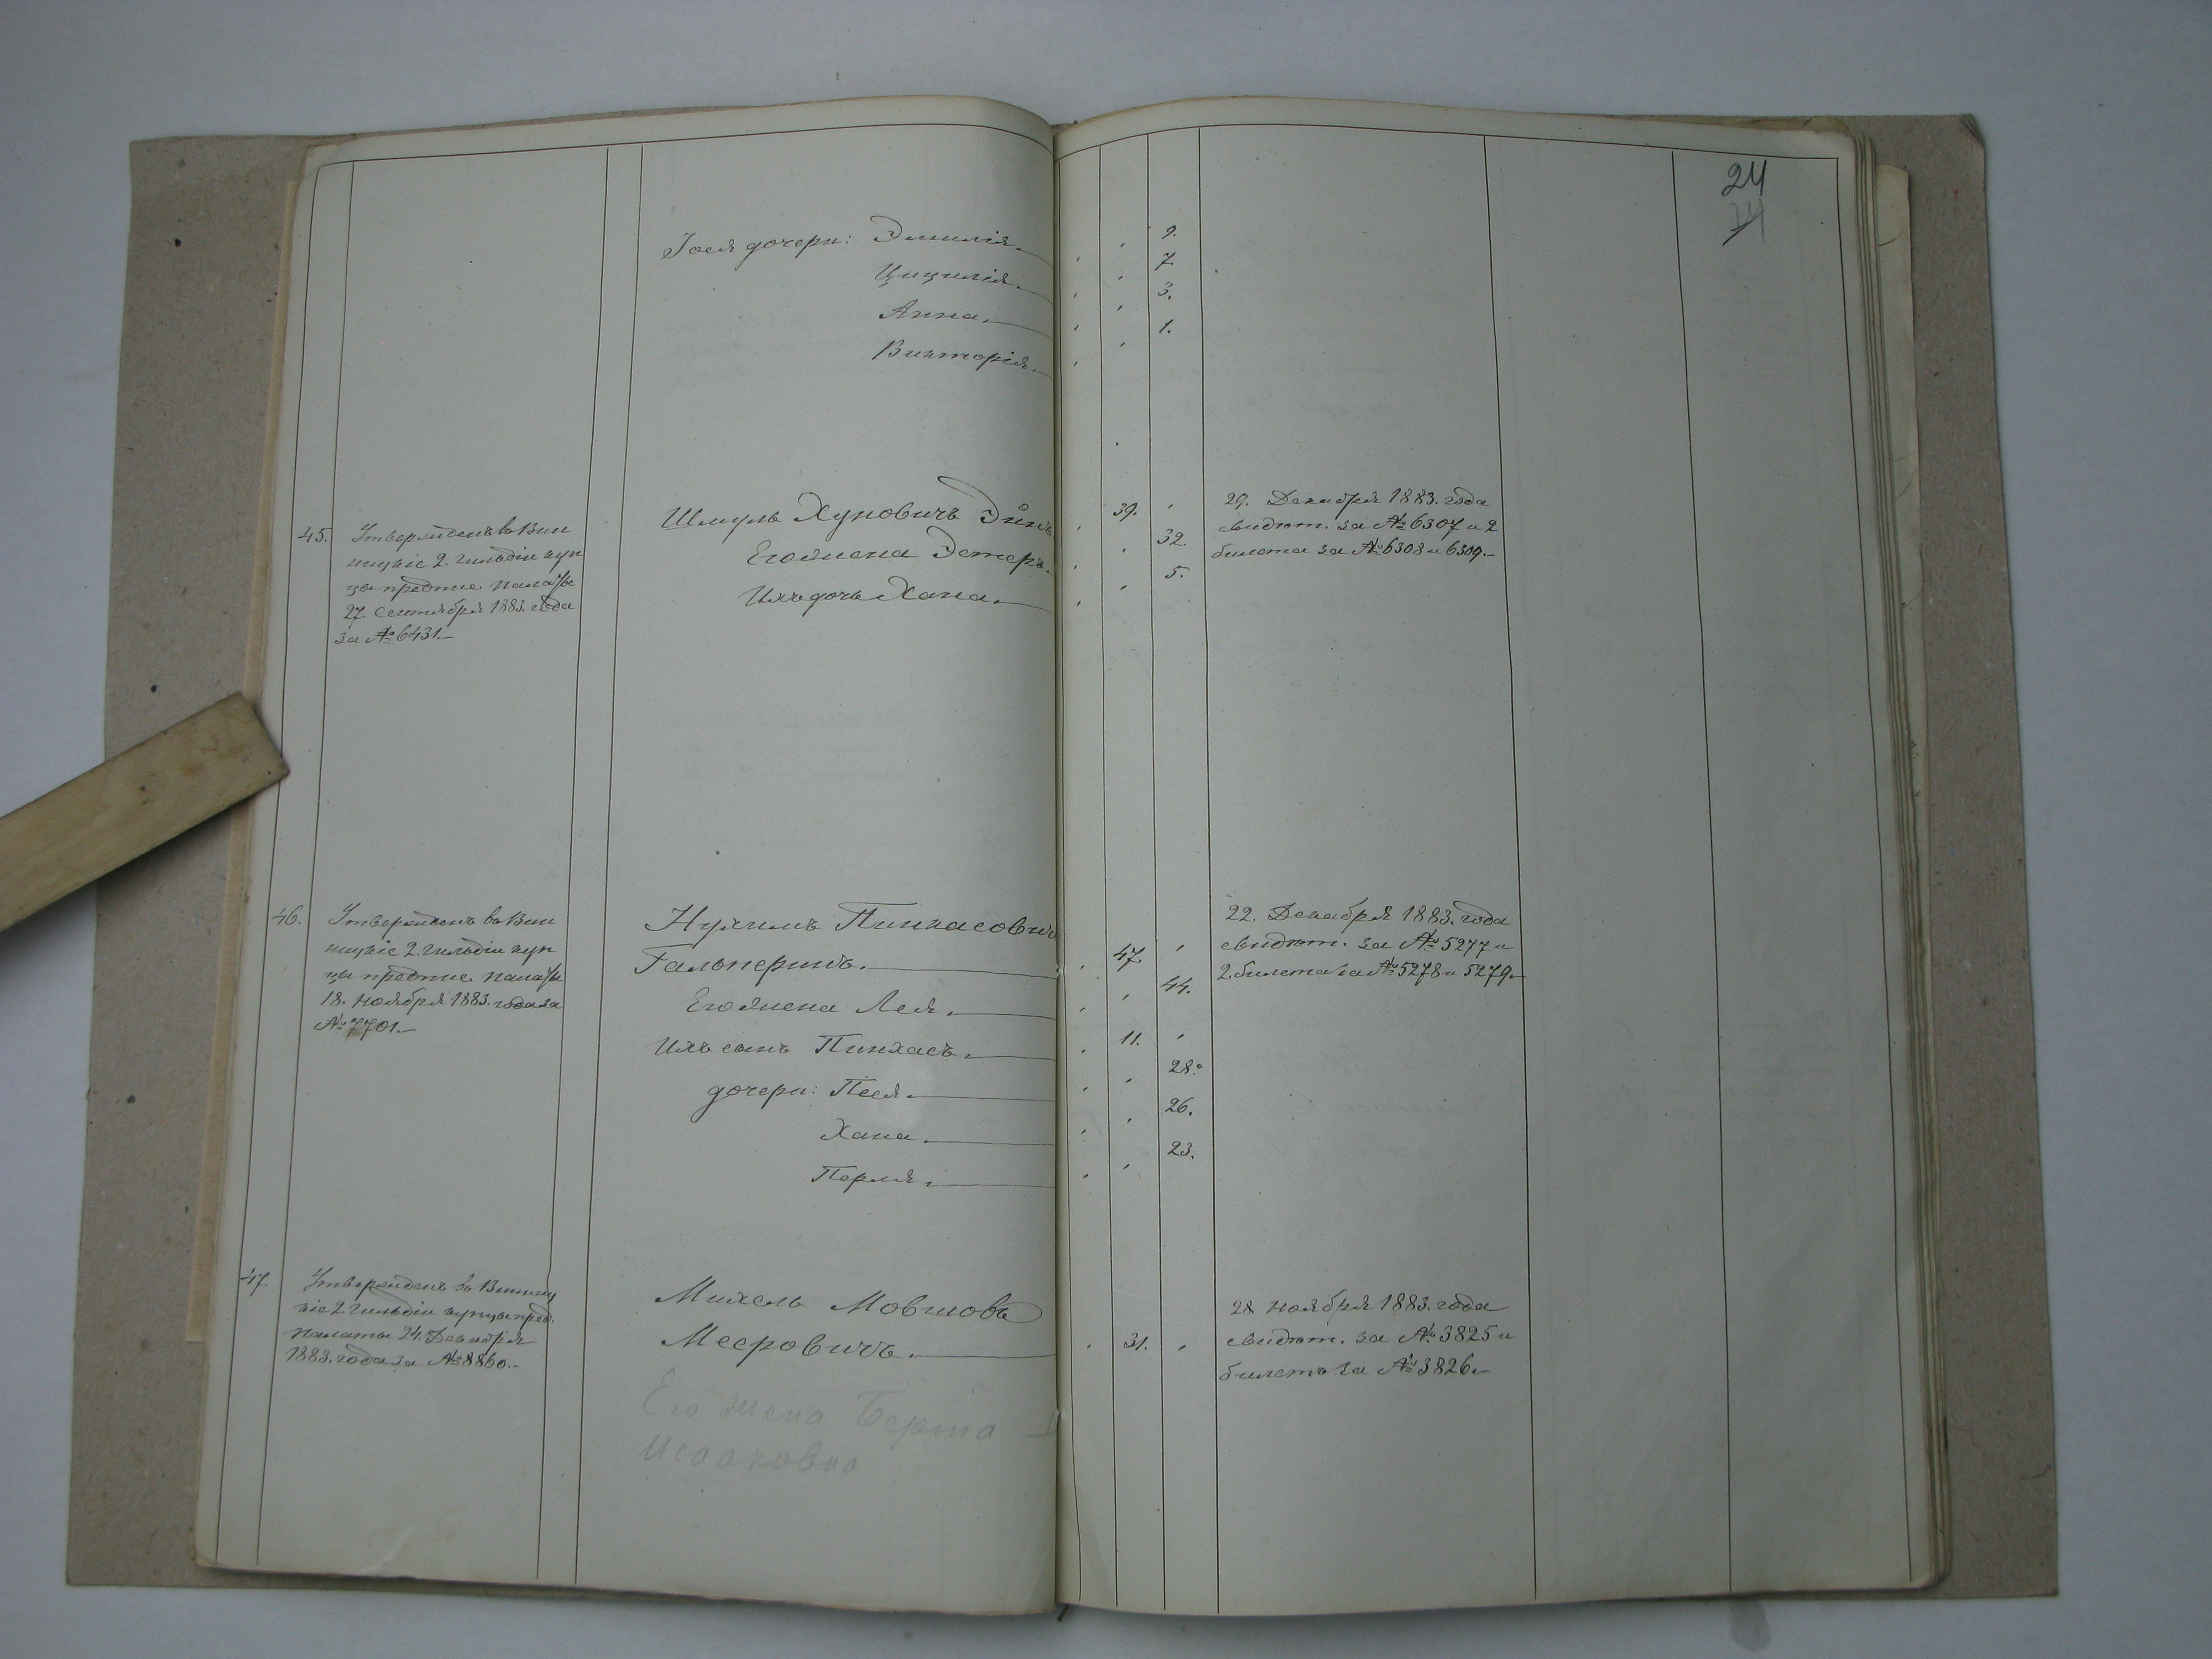 24
24
Іося дочери: Эмилія. 9.
Цицилія. 7.
Анна. 3.
Викторія. 1.
45. Утвержденъ въ Вин
ницкіе 2. гильдіи куп
цы предпис. палаты
27 Сентября 1883. года
за № 6431.
Шмуль Хуновичъ 39.
Его жена Эстеръ. 32.
Ихъ дочь Хана. 5.
29. Декабря 1883. года
свидѣт. за № 6307 и 2
билета за № 6308 и 6309.
46. Утвержденъ въ Вин
ницкіе 2. гильдіи куп
цы предпис. палаты
18. Ноября 1883. года за
№ 7701.
Нухимъ Пинкасовичъ
Гальперинъ. 47.
Его жена Лея. 44.
Ихъ сынъ Пинхасъ. 11.
дочери: Песя. 28.
Хана. 26.
Перля. 23.
22. Декабря 1883. года
свидѣт. за № 5277 и
2. билета за № 5278 и 5279.
47. Утвержденъ въ Винниц
кіе 2. гильдіи купцы пред.
палаты 24. Декабря
1883. года за № 8860.
Михель Мовшовъ
Мееровичъ. 31.
Его жена Берта
Исааковна
28 Ноября 1883. года
свидѣт. за № 3825 и
билетъ за № 3826.